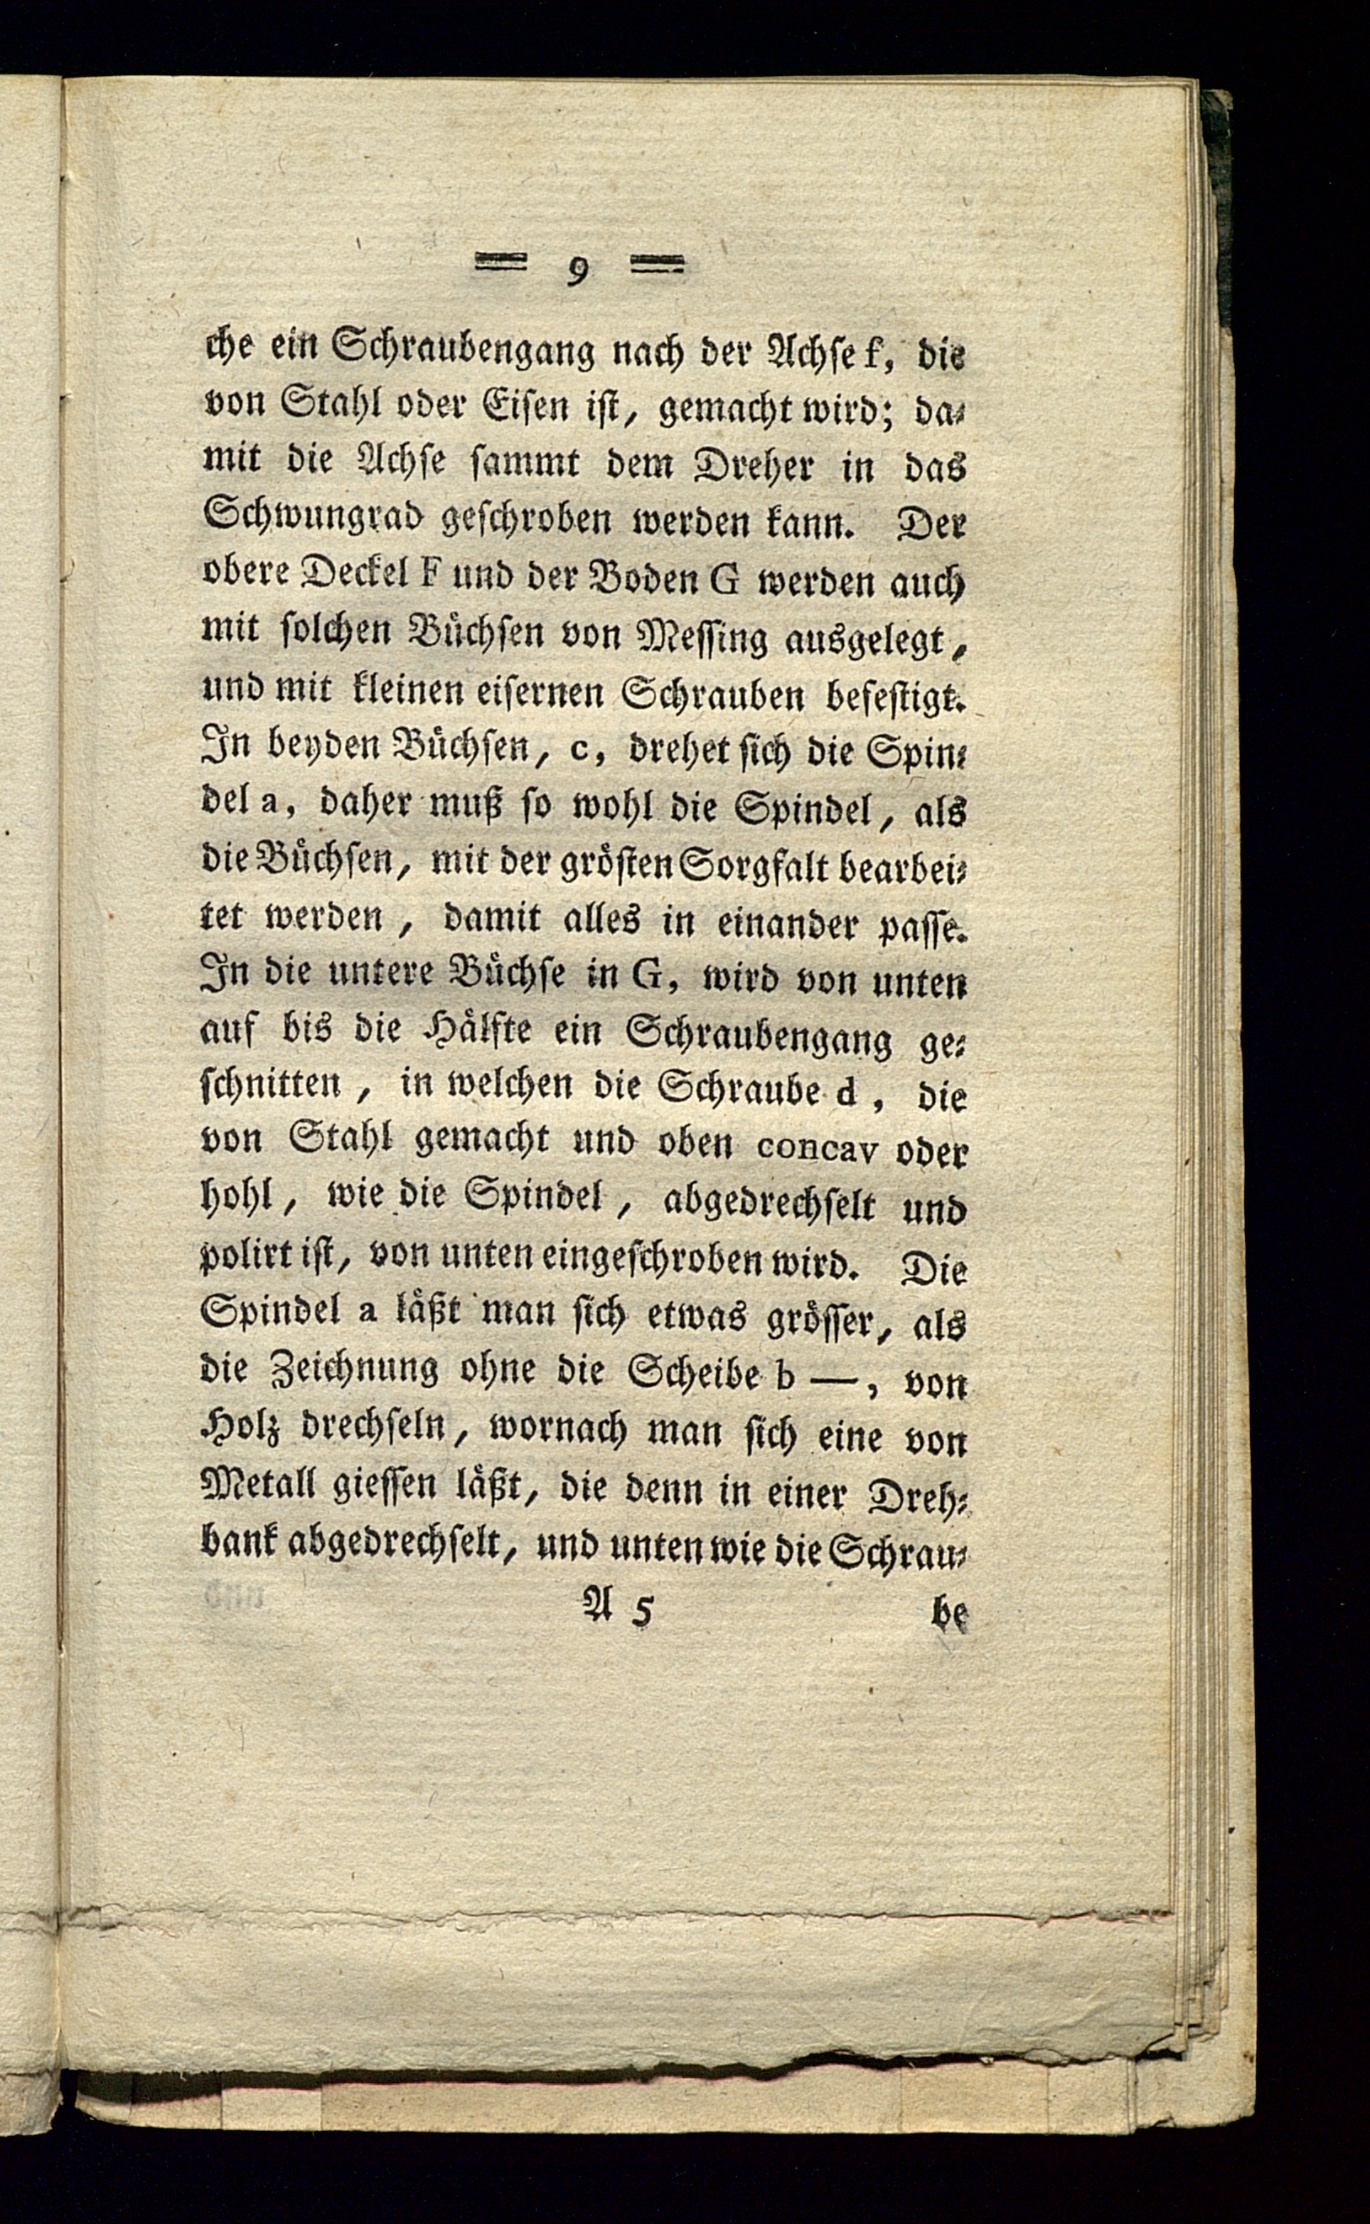 = 9 =
che ein Schraubengang nach der Achse f, die
von Stahl oder Eisen ist, gemacht wird; da⸗
mit die Achse sammt dem Dreher in das
Schwungrad geschroben werden kann. Der
obere Deckel F und der Boden G werden auch
mit solchen Büchsen von Messing ausgelegt,
und mit kleinen eisernen Schrauben befestigt.
In beyden Büchsen, c, drehet sich die Spin⸗
del a, daher muß so wohl die Spindel, als
die Büchsen, mit der grösten Sorgfalt bearbei⸗
tet werden, damit alles in einander passe.
In die untere Büchse in G, wird von unten
auf bis die Hälfte ein Schraubengang ge⸗
schnitten, in welchen die Schraube d, die
von Stahl gemacht und oben concav oder
hohl, wie die Spindel, abgedrechselt und
polirt ist, von unten eingeschroben wird. Die
Spindel a läßt man sich etwas grösser, als
die Zeichnung ohne die Scheibe b —, von
Holz drechseln, wornach man sich eine von
Metall giessen läßt, die denn in einer Dreh⸗
bank abgedrechselt, und unten wie die Schrau⸗
A 5 be